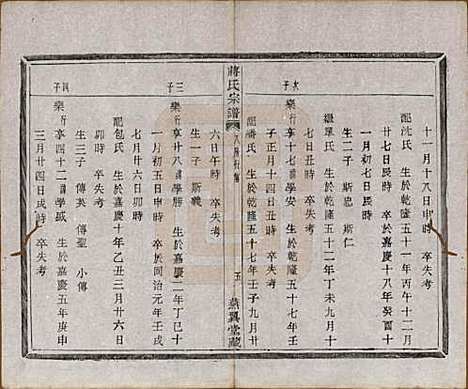 十一月十八日申時 卒失考
配沈氏 生於乾隆五十一年丙午十二月
廿七日辰時 卒於嘉慶十八年癸酉十
一月初七日辰時
生二子 斯忠 斯仁
繼單氏 生於乾隆五十二年丁未九月十
七日丑時 卒失考
次子
樂行享七 諱學安 生於乾隆五十七年壬
子正月十四日丑時 卒失考
配潘氏 生於乾隆五十七年壬子九月廿
蔣氏宗譜
五
燕翼堂藏
六日午時 卒失考
生一子 斯義
三子
樂行享廿八 諱學勝 生於嘉慶二年丁巳十
一月初五日辰時 卒於同治元年壬戌
七月廿六日卯時
配包氏 生於嘉慶十年乙丑三月廿六日
卯時 卒失考
生三子 傳英 傳聖 小傳
四子
樂行享四十二 諱學威 生於嘉慶五年庚申
三月廿四日戌時 卒失考